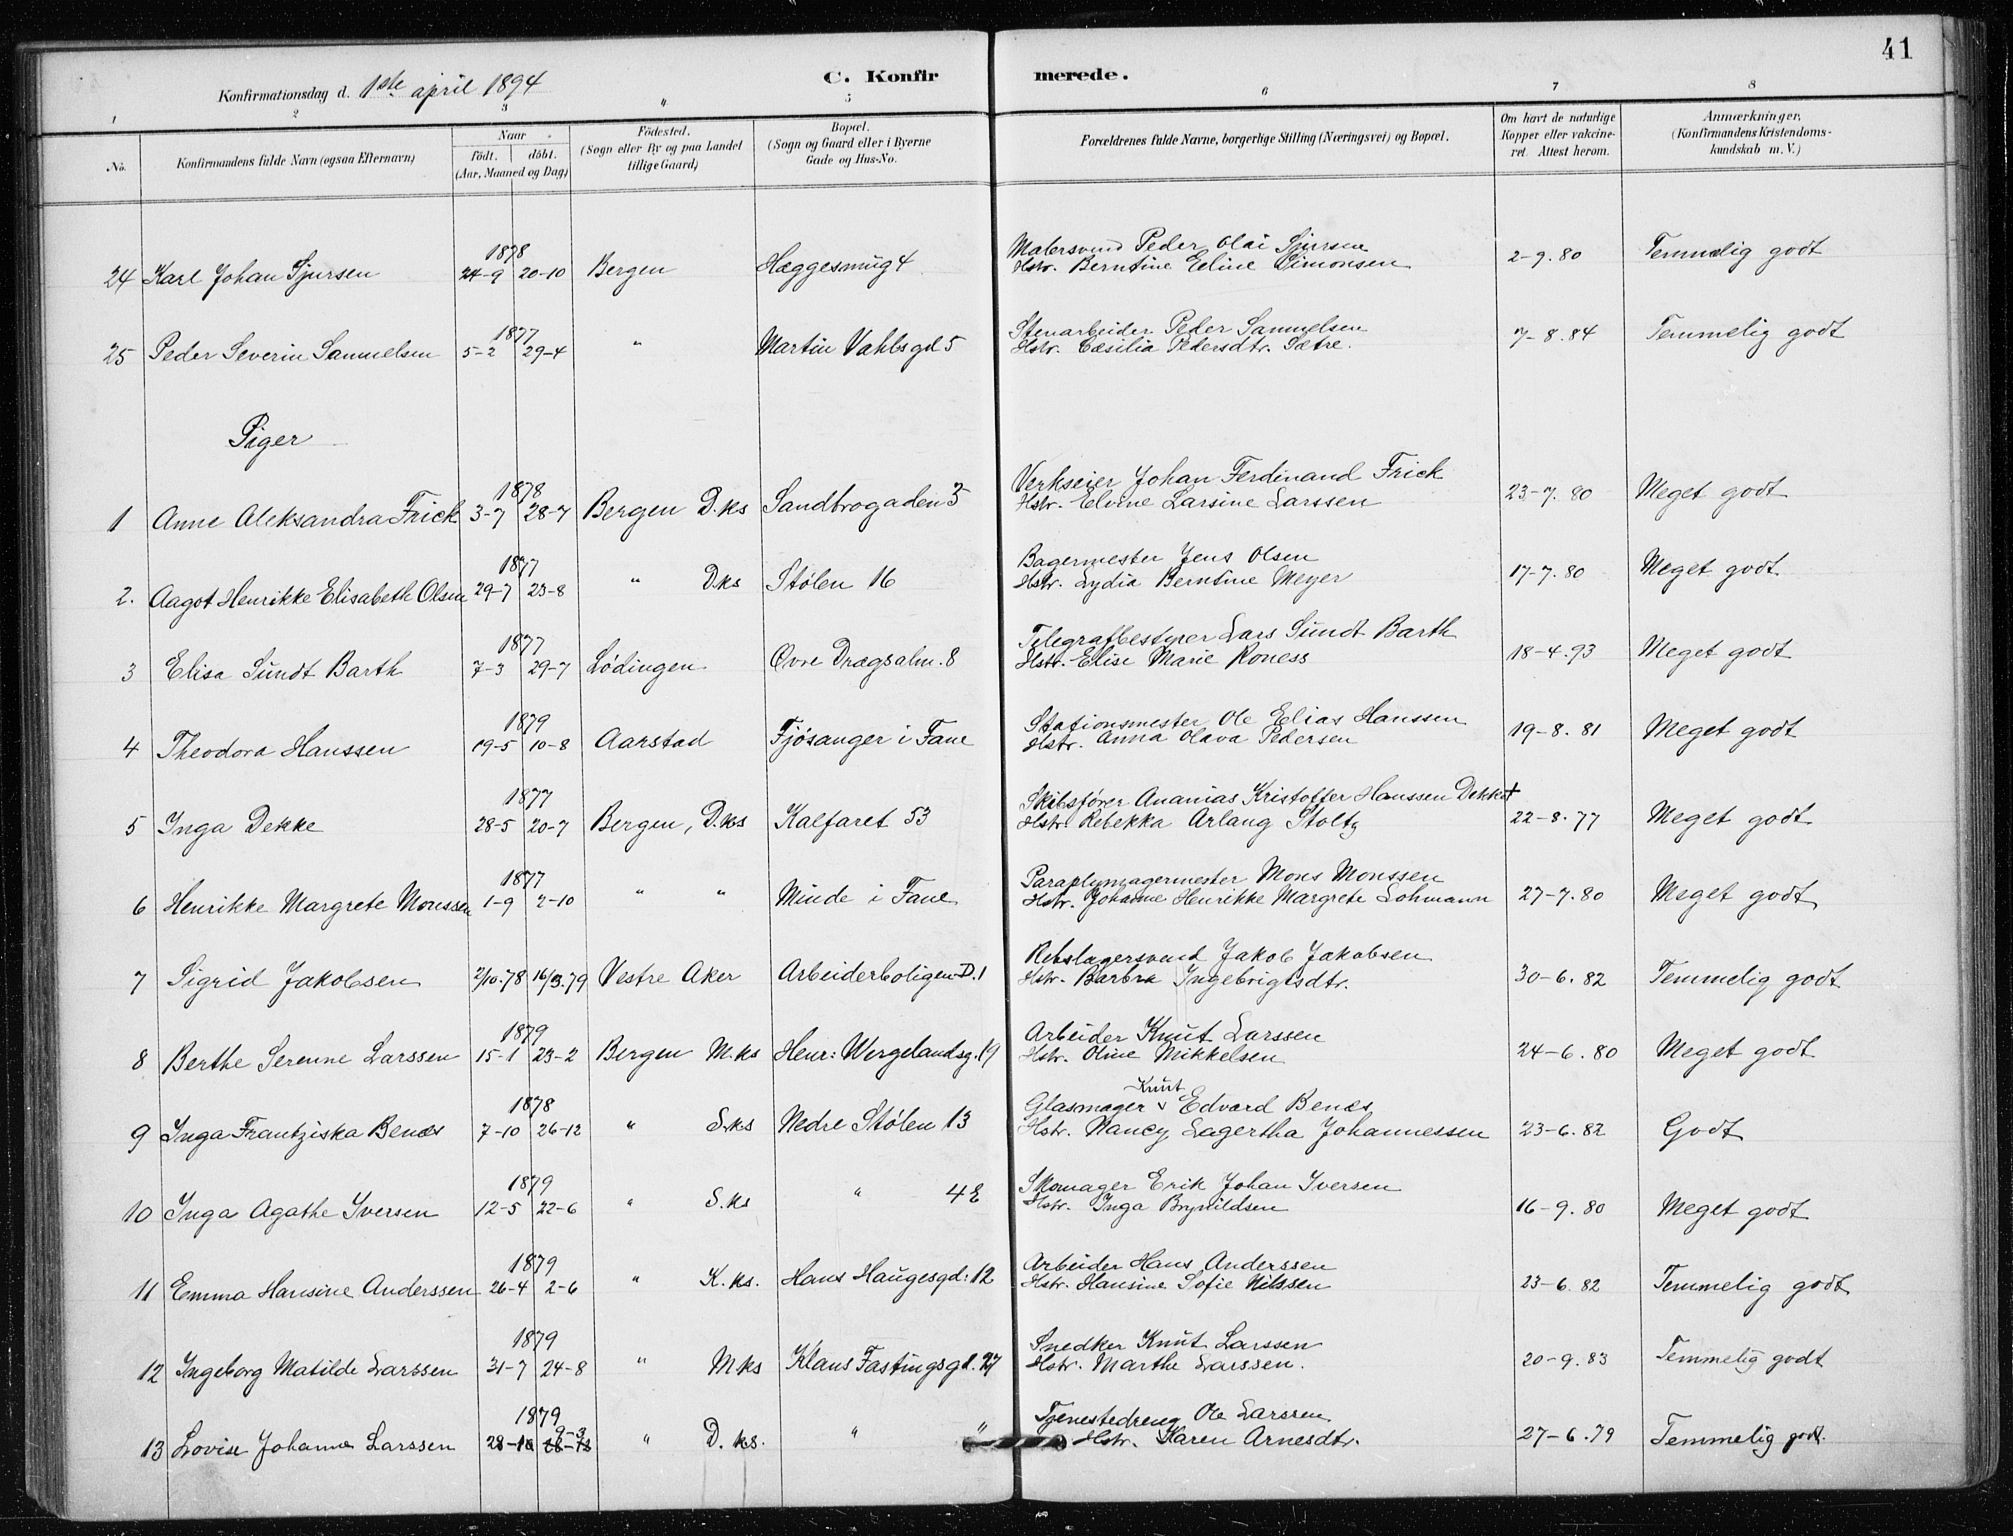 41
Konfirmationsdag d. 1ste april 1894
C. Konfirmerede.
1 2 3 " 5 6 7 8
No. Konfirmandens fulde Navn (ogsaa Efternavn) Naar födt. döbt. (Aar, Maaned og Dag) Födested. (Sogn eller By og paa Landet tillige Gaard) Bopæl. (Sogn og Gaard eller i Byerne Gade og Hus-No. Forældrenes fulde Navne, borgerlige Stilling (Næringsvei) og Bopæl. Om havt de naturlige Kopper eller vakcineret. Attest herom. Anmærkninger, (Konfirmandens Kristendomskundskab m. V.)
1878 Malersvend Peder Olai Sjursen
24 Karl Johan Sjursen 24-9 20-10 Bergen Hæggesmug 4 Hstr. Berntine Eeline Simonsen 2-9.80 Temmelig godt
1877 Stenarbeider Peder Samuelsen
25 Peder Severin Samuelsen 5-2 29-4 " Martin Vahlsgd 5 Hstr. Cæsilia Pedersdtr. Sætre. 7-8.84 Temmelig godt
Piger
1878 Verkseier Johan Ferdinand Frick
1 Anne Aleksandra Frick 3-7 28-7 Bergen D.ks Sandbrogaden 3 Hstr. Elvine Larsine Larssen 23-7.80 Meget godt
1877 Bagermester Jens Olsen
2. Aagot Henrikke Elisabeth Olsen 29-7 23-8 " D.ks Stölen 16 Hstr. Lydia Berntine Meyer 17-7.80 Meget godt
1877 Telegrafbestyrer Lars Sundt Barth
3 Elisa Sundt Barth 7-3 29-7 Lödingen Øvre Drægsalm. 8 Hstr. Elise Marie Roness 18-4.93 Meget godt
1879 Stationsmester Ole Elias Hanssen
4 Theodora Hanssen 19-5 10-8 Aarstad Fjösanger i Fane Hstr. Anna Olava Pedersen 19-8.81 Meget godt
1877 Skibsfører Ananias Kristoffer Hanssen Dekke †
5 Inga Dekke 28-5 20-7 Bergen, D.ks Kalfaret 53 Hstr. Rebekka Arlang Stoltz 22-8.77 Meget godt
1877 Paraplymagermester Mons Monssen
6 Henrikke Margrete Monssen 1-9 2-10 " " Minde i Fane Hstr. Johanne Henrikke Margrete Lohmann 27-7.80 Meget godt
Rebslagersvend Jakob Jakobsen
7 Sigrid Jakobsen 2/10.78 16/3.79 Vestre Aker Arbeiderboligen D.1 Hstr. Barbra Ingebrigtsdtr. 30-6.82 Temmelig godt
1879 Arbeider Knut Larssen
8 Berthe Serenne Larssen 15-1 23-2 Bergen M.ks Henr: Wergelandsg. 19 Hstr. Oline Mikkelsen 24-6.80 Meget godt
1878 Glasmager Knut Edvard Benes
9 Inga Frantziska Benes 7-10 26-12 " S.ks Nedre Stølen 13 Hstr. Nancy Lagertha Johannessen 23-6.82 Godt
1879 Skomager Erik Johan Iversen
10 Inga Agathe Iversen 12-5 22-6 " S.ks " 4 E Hstr. Inga Brynildsen 16-9.80 Meget godt
1879 Arbeider Hans Anderssen
11 Emma Hansine Anderssen 26-4 2-6 " K.ks. Hans Haugesgd: 12 Hstr. Hansine Sofie Nilssen 23-6.82 Temmelig godt
1879 Snedker Knut Larssen
12 Ingeborg Matilde Larssen 31-7 24-8 " M.ks Klaus Fastingsgd. 27 Hstr. Marthe Larssen. 20-9.83 Temmelig godt
1879 Tjenestedreng Ole Larssen
13 Lovise Johanne Larssen " D. ks. " " Hstr. Karen Arnesdtr. 27-6.79 Temmelig godt.